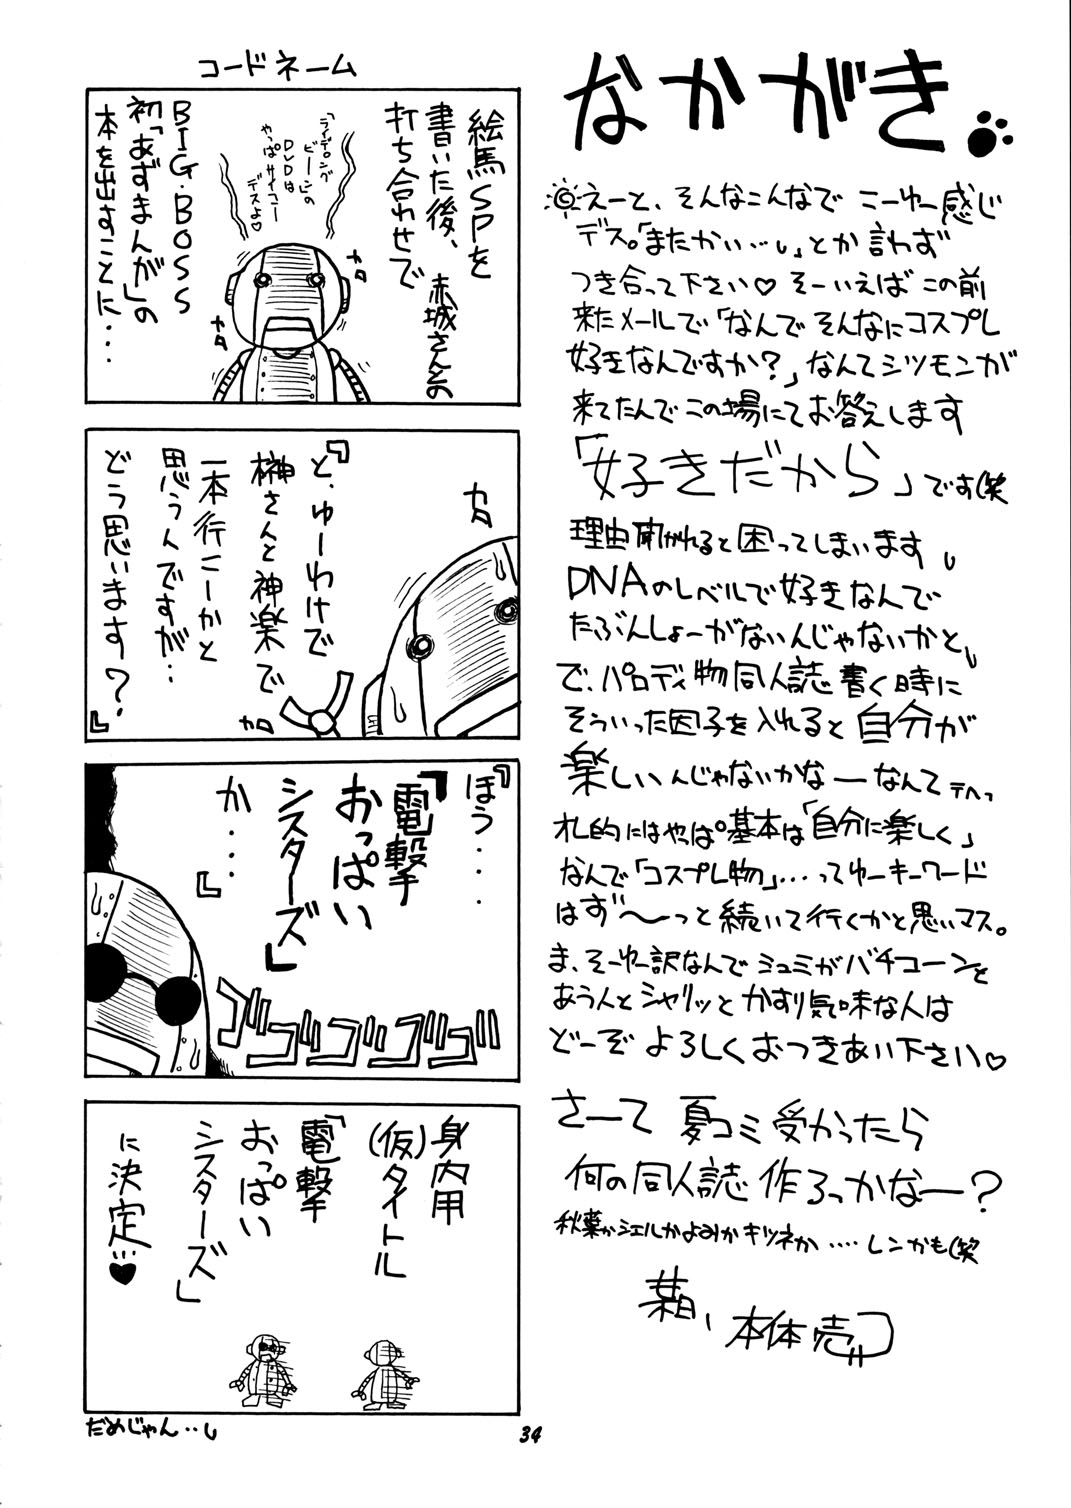 なかがき
えーと、そんなこんなで こーゆー感じ
デス。「またかい…」とか言わず
つき合って下さい♡ そーいえば この前
来たメールで「なんでそんなにコスプレ
好きなんですか?」なんてシツモンが
来てたんでこの場にてお答えします
「好きだから」です(笑
理由聞かれると困ってしまいます
DNAのレベルで好きなんで
たぶんしょーがないんじゃないかと
で、パロディ物同人誌書く時に
そういった因子を入れると自分が
楽しいんじゃないかなーなんて
私的にはやっぱ基本は「自分に楽しく」
なんで「コスプレ物」…ってゆーキーワード
はず〜っと続いて行くかと思いマス。
ま、そーゆー訳なんでシュミがバチコーンと
あう人とシャリッとかすり気味な人は
どーぞよろしくおつきあい下さい♡
さーて 夏コミ受かったら
何の同人誌 作ろっかなー?
秋葉かシエルかよみかキツネか‥‥レンかも(笑
本体売
コードネーム
絵馬SPを
書いた後、赤城さんとの
打ち合わせで
「ライデング
ビーン」の
DVDは
やっぱサイコー
デスよ♡
BIG・BOSS
初「あずまんが」の
本を出すことに・・・
カタ
カタ
『と、ゆーわけで
榊さんと神楽で
一本行こーかと
思うんですが‥
どう思います?』
カタ
カタ
『ほう・・・・
『電撃
おっぱい
シスターズ』
か・・・』
ゴゴゴゴゴ
身内用
(仮)タイトル
『電撃
おっぱい
シスターズ』
に決定…♥
だめじゃん‥
34